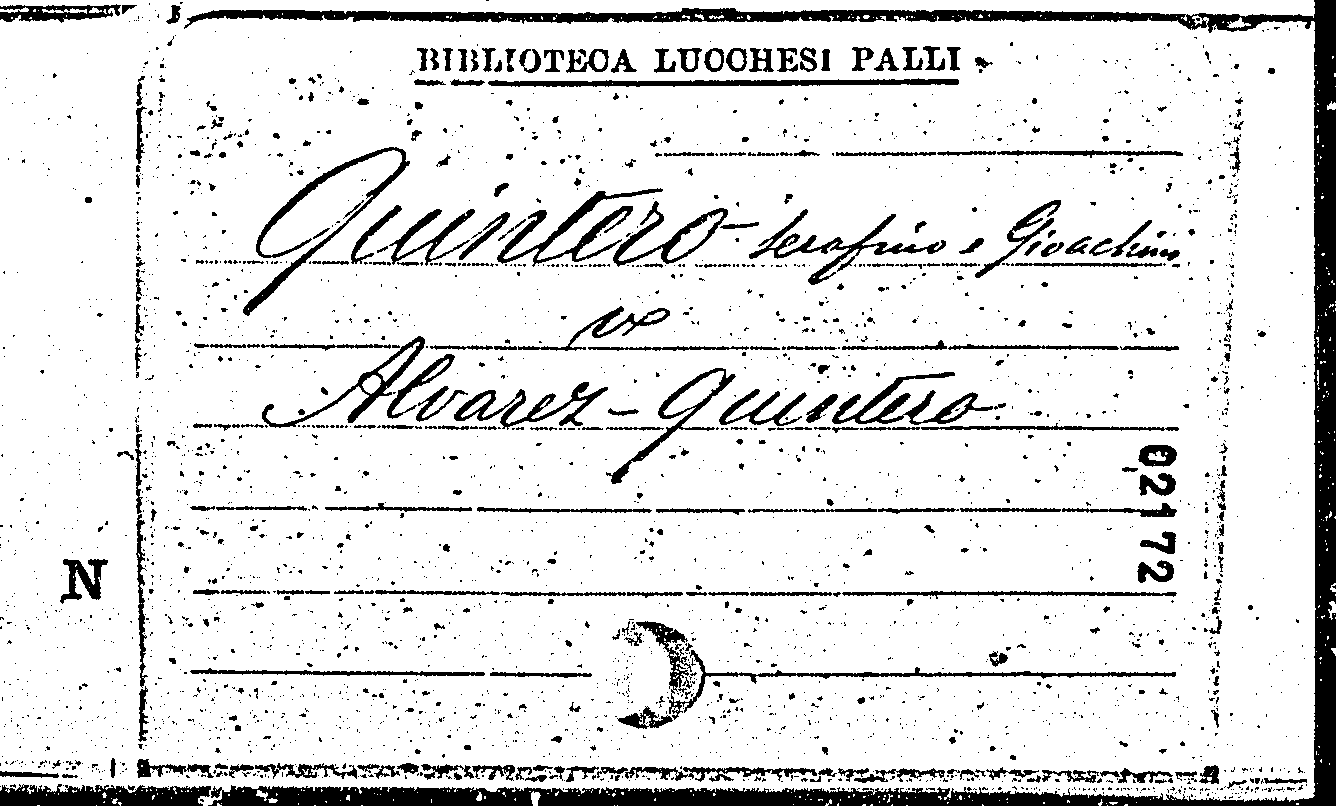 BIBLIOTECA LUCCHESI PALLI
Quintero Serafino e Gioachino
Alvarez-Quintero
02172
N